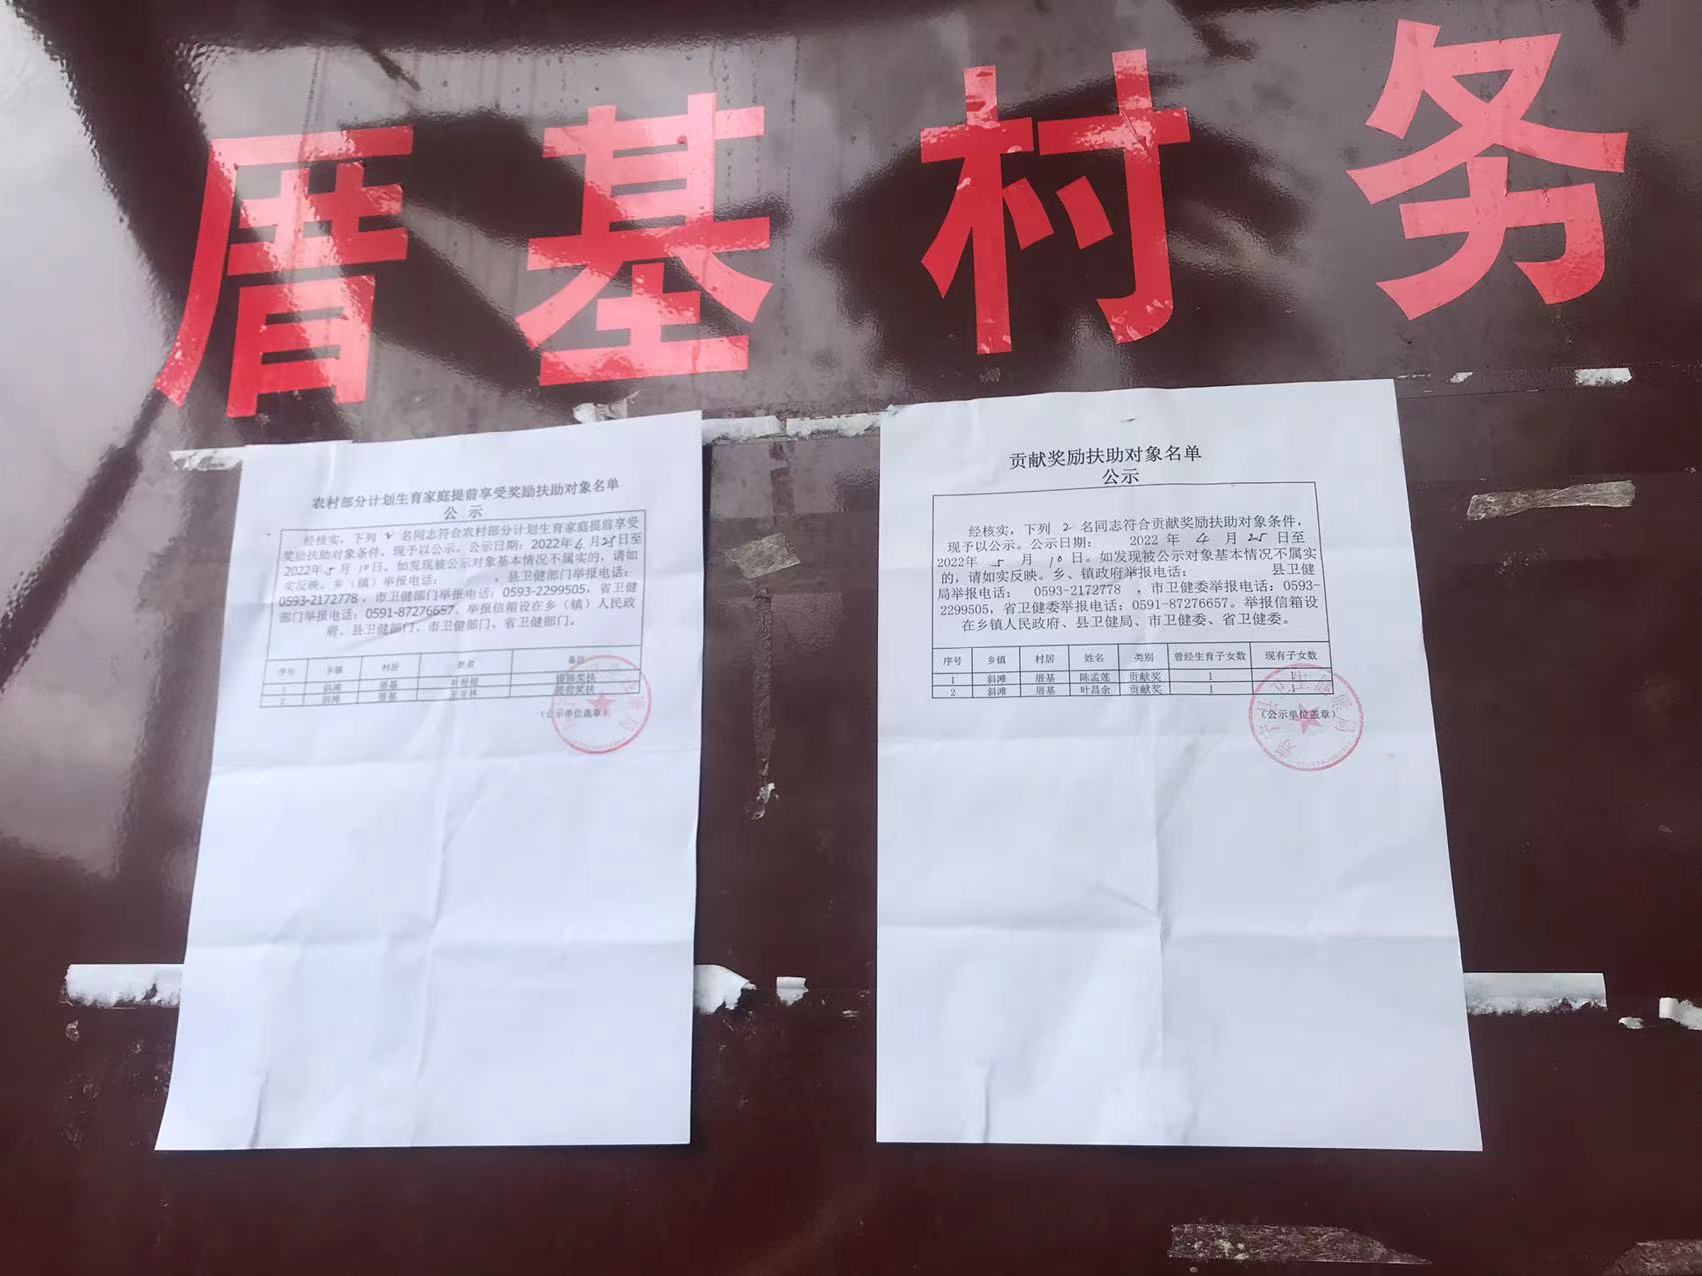 厝基村务
农村部分计划生育家庭提前享受奖励扶助对象名单
公 示
经核实，下列 2 名同志符合农村部分计划生育家庭提前享受
奖励扶助对象条件，现予以公示。公示日期：2022年4月25日至
2022年5月10日。如发现被公示对象基本情况不属实的，请如
实反映。乡（镇）举报电话： ，县卫健部门举报电话：
0593-2172778，市卫健部门举报电话：0593-2299505，省卫健
部门举报电话：0591-87276657。举报信箱设在乡（镇）人民政
府、县卫健部门、市卫健部门、省卫健部门。
序号 乡镇 村居 姓名 备注
1 斜滩 厝基 提前奖扶
2 斜滩 厝基 提前奖扶
（公示单位盖章）
贡献奖励扶助对象名单
公示
经核实，下列 2 名同志符合贡献奖励扶助对象条件，
现予以公示。公示日期： 2022 年 4 月 25 日至
2022年 5 月 10 日。如发现被公示对象基本情况不属实
的，请如实反映。乡、镇政府举报电话： 县卫健
局举报电话： 0593-2172778 ，市卫健委举报电话：0593-
2299505，省卫健委举报电话：0591-87276657。举报信箱设
在乡镇人民政府、县卫健局、市卫健委、省卫健委。
序号 乡镇 村居 姓名 类别 曾经生育子女数 现有子女数
1 斜滩 厝基 陈孟莲 贡献奖 1 1
2 斜滩 厝基 叶昌余 贡献奖 1 1
（公示单位盖章）
寿宁县卫生健康局